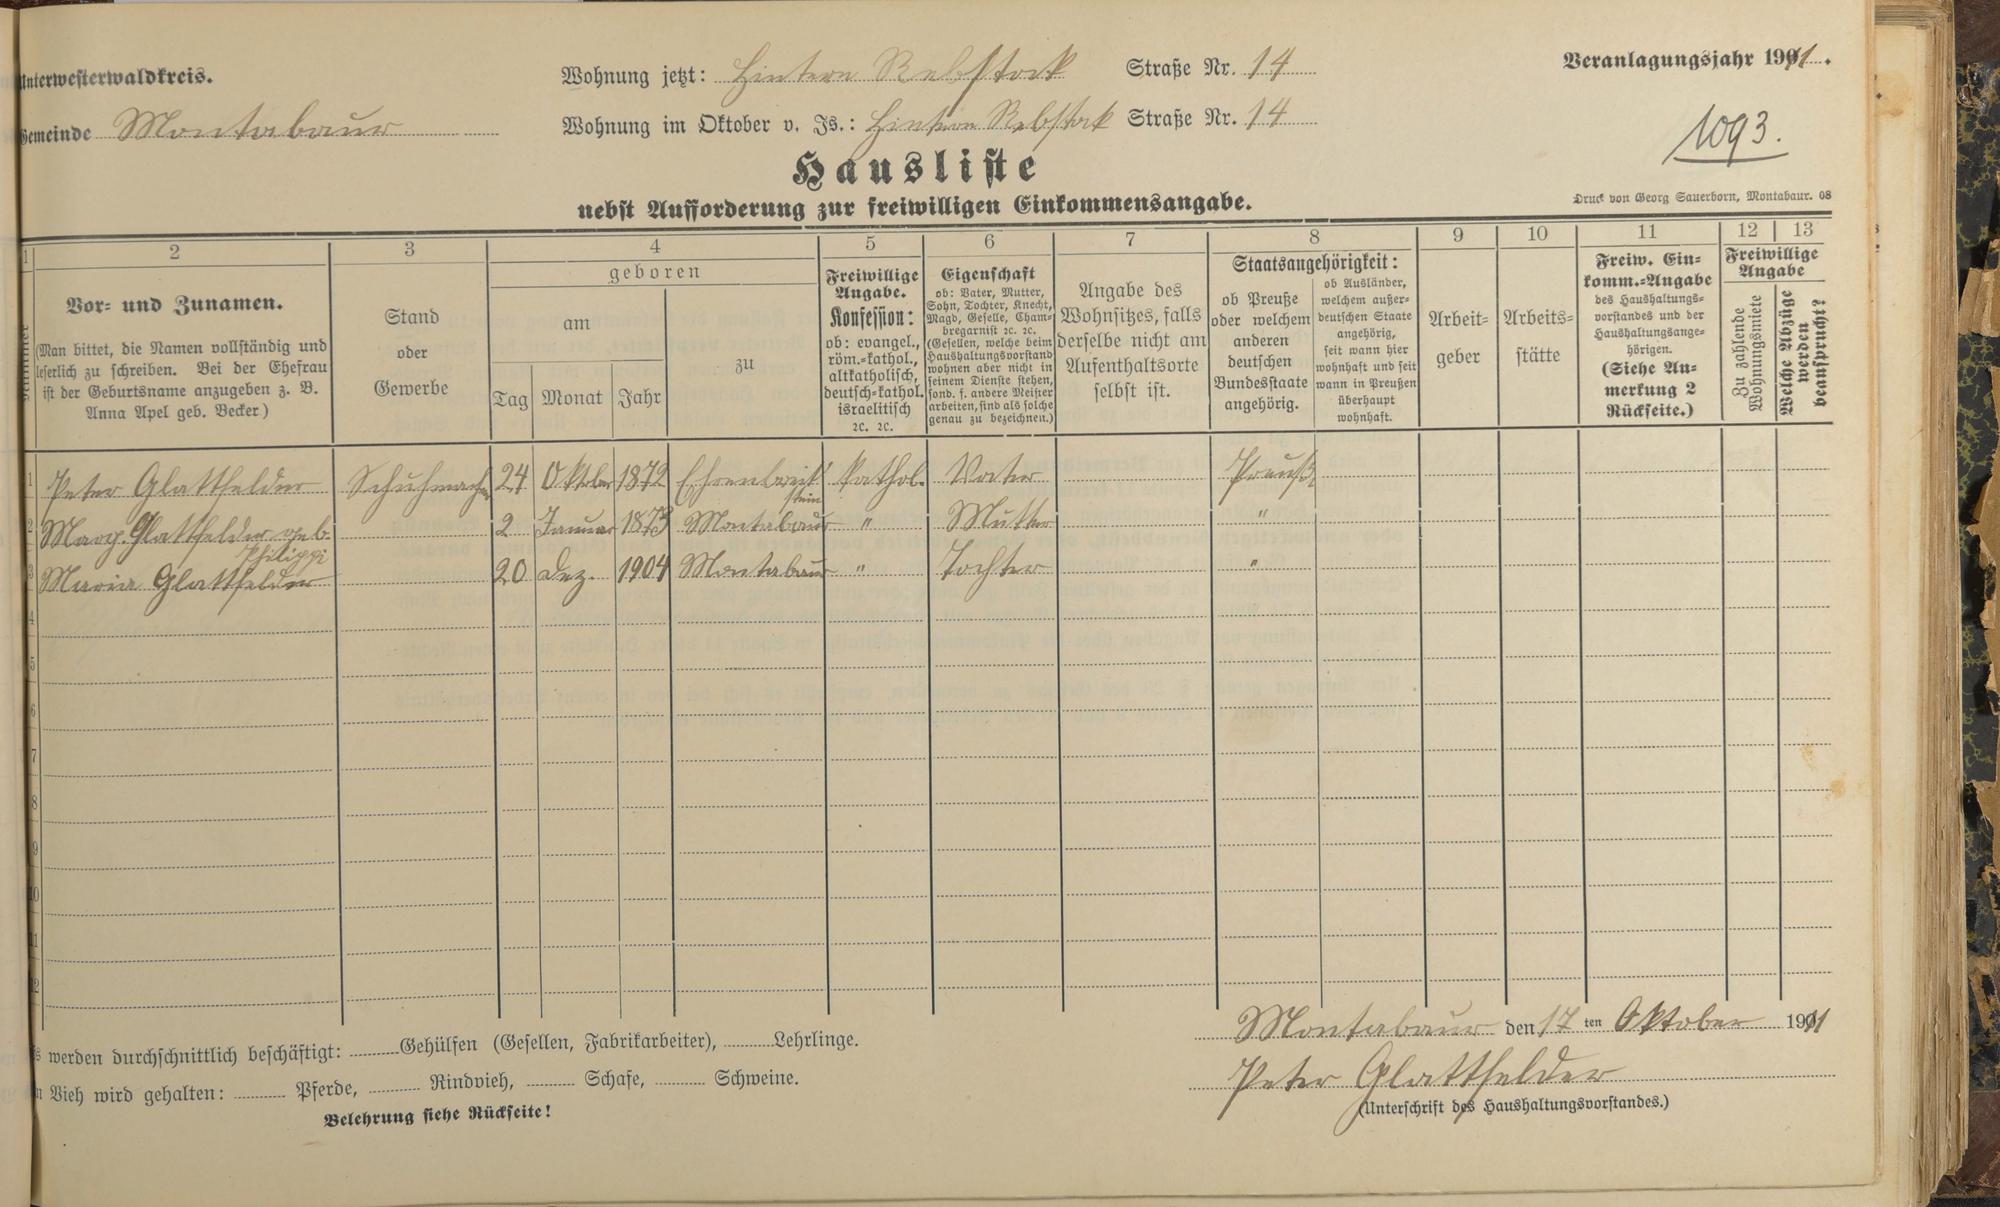 Unterwesterwaldkreis.
Gemeinde Montabaur
Wohnung jetzt: Hintern Rebstock Straße Nr. 14
Wohnung im Oktober v. Js.: Hintern Rebstock Straße Nr. 14
Veranlagungsjahr 1911.
1093.
Hausliste
nebst Aufforderung zur freiwilligen Einkommensangabe.
Druck von Georg Sauerborn, Montabaur. 08
1 2 3 4 5 6 7 8 9 10 11 12 13
Nummer
Vor- und Zunamen.
(Man bittet, die Namen vollständig und
leserlich zu schreiben. Bei der Ehefrau
ist der Geburtsname anzugeben z. B.
Anna Apel geb. Becker.)
Stand
oder
Gewerbe
geboren
am
Tag Monat Jahr
zu
Freiwillige
Angabe.
Konfession:
ob: evangel.,
röm.-kathol.,
altkatholisch,
deutsch-kathol.
israelitisch
ꝛc. ꝛc.
Eigenschaft
ob: Vater, Mutter,
Sohn, Tochter, Knecht,
Magd, Geselle, Cham-
bregarnist ꝛc. ꝛc.
(Gesellen, welche beim
Haushaltungsvorstand
wohnen aber nicht in
seinem Dienste stehen,
sond. f. andere Meister
arbeiten, sind als solche
genau zu bezeichnen.)
Angabe des
Wohnsitzes, falls
derselbe nicht am
Aufenthaltsorte
selbst ist.
Staatsangehörigkeit:
ob Preuße
oder welchem
anderen
deutschen
Bundesstaate
angehörig.
ob Ausländer,
welchem außer-
deutschen Staate
angehörig,
seit wann hier
wohnhaft und seit
wann in Preußen
überhaupt
wohnhaft.
Arbeit-
geber
Arbeits-
stätte
Freiw. Ein-
komm.-Angabe
des Haushaltungs-
vorstandes und der
Haushaltungsange-
hörigen.
(Siehe An-
merkung 2
Rückseite.)
Freiwillige
Angabe
Zu zahlende
Wohnungsmiete
Welche Abzüge
werden
beansprucht?
1 Peter Glattfelder Schuhmacher 24 Oktober 1872 Ehrenbreit
stein kathol. Vater Preuße
2 Marg. Glattfelder geb.
Philippi 2 Januar 1873 Montabaur " Mutter "
3 Maria Glattfelder 20 Dez. 1904 Montabaur " Tochter "
4
5
6
7
8
9
10
11
12
Montabaur den 17 ten Oktober 1911
Peter Glattfelder
(Unterschrift des Haushaltungsvorstandes.)
werden durchschnittlich beschäftigt: Gehülfen (Gesellen, Fabrikarbeiter), Lehrlinge.
Vieh wird gehalten: Pferde, Rindvieh, Schafe, Schweine.
Belehrung siehe Rückseite!